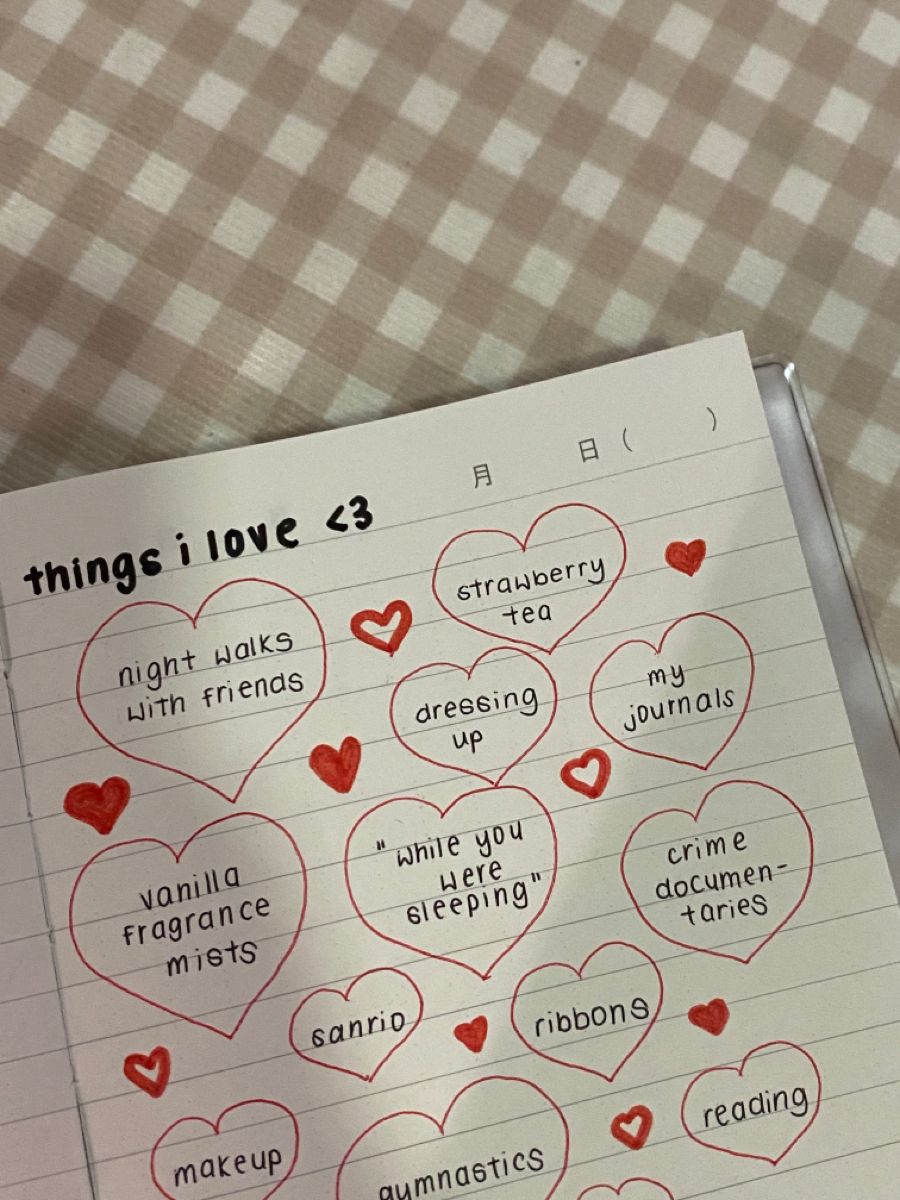 月 日 ( )
things i love <3
strawberry
tea
night walks
with friends
dressing
up
my
journals
vanilla
fragrance
mists
"while you
were
sleeping"
crime
documen-
taries
sanrio
ribbons
reading
makeup
gymnastics